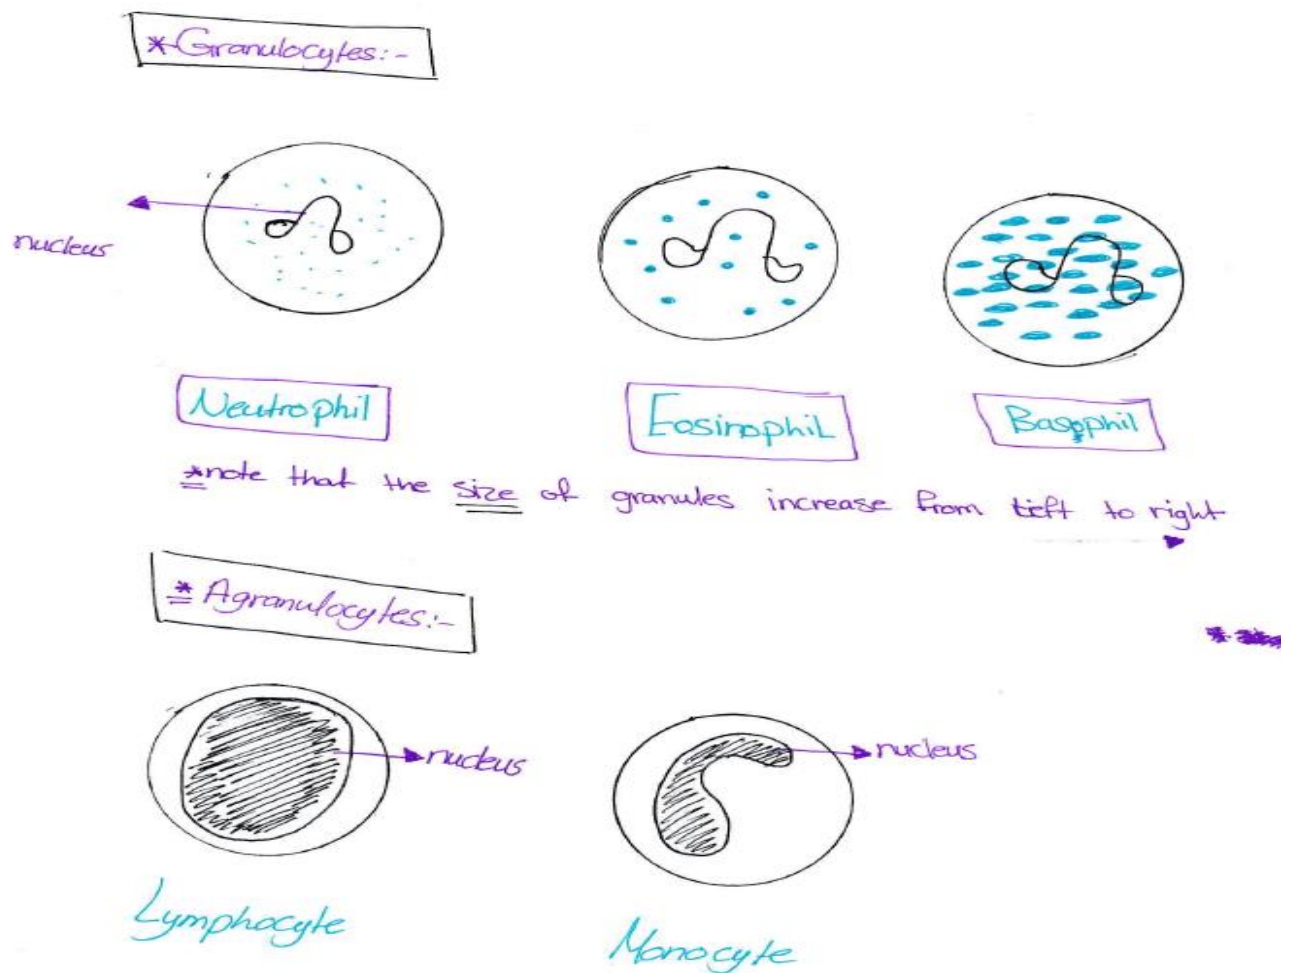 *Granulocytes:-
nucleus
Neutrophil
Eosinophil
Basophil
*note that the size of granules increase from left to right
* Agranulocytes:-
nucleus
nucleus
Lymphocyte
Monocyte